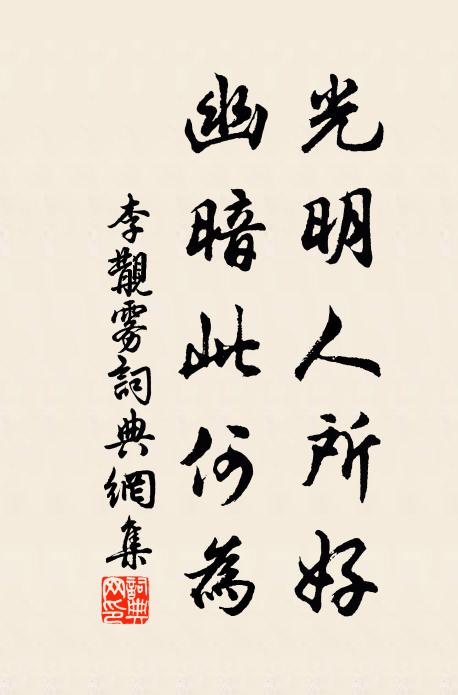 光明人所好
幽暗此何為
李觏雾詞典網集
詞典网印